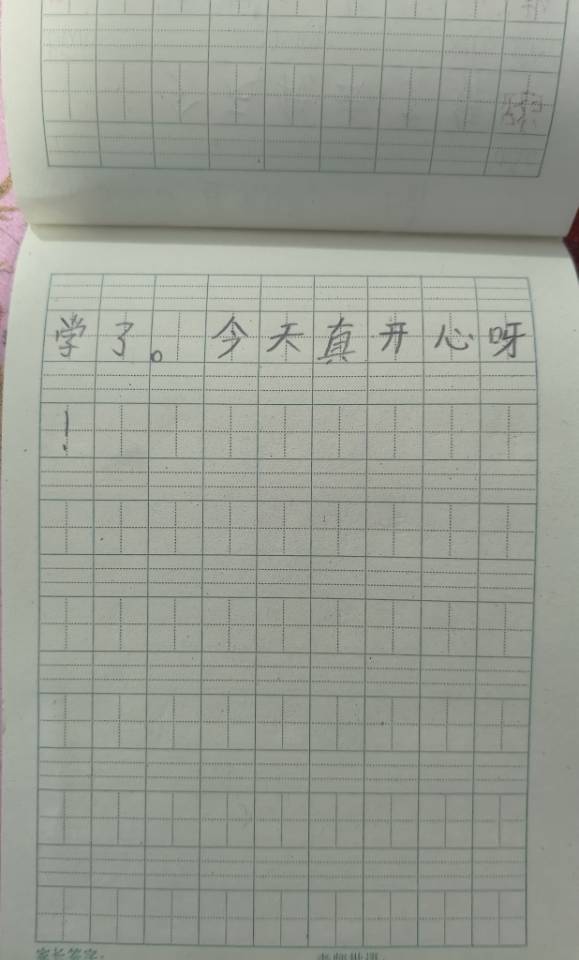 学了。今天真开心呀
！
家长签字:
老师批语: